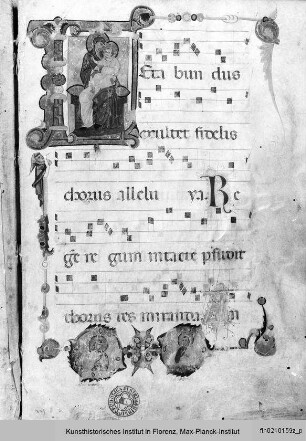 Eta bun dus
exultet fidelis
chorus allelu ya. Re
ge re gum intacte pfudit
thorus res miranda.
Kunsthistorisches Institut in Florenz, Max-Planck-Institut